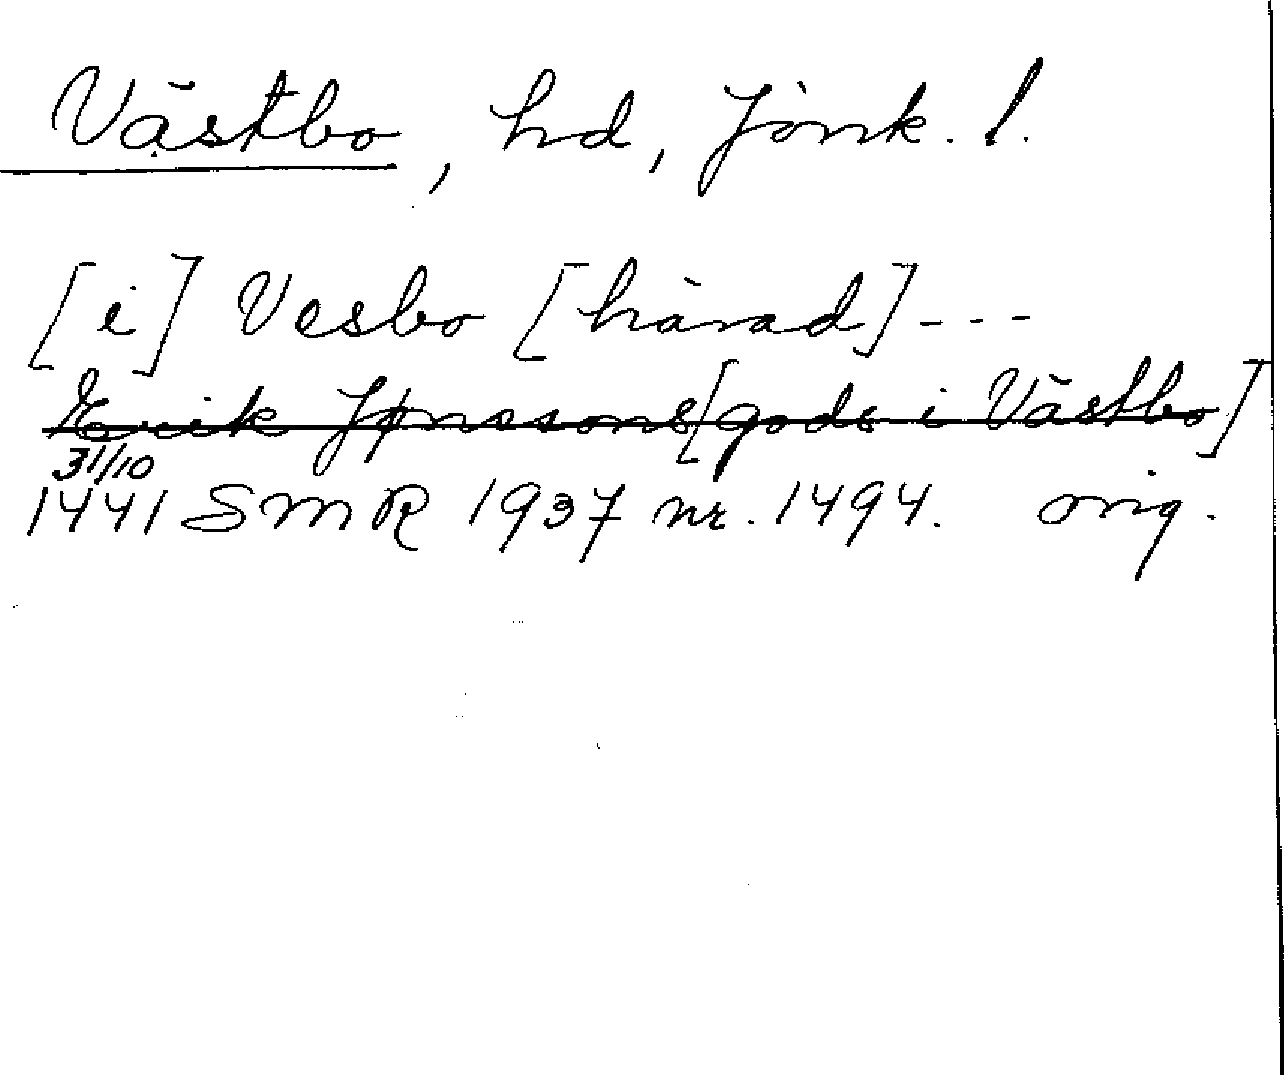 Västbo, hd, Jönk. l.
[i] Vesbo [härad] - - -
Erik Jønssons [gods i Västbo]
31/10
1441 SMR 1937 nr. 1494. orig.